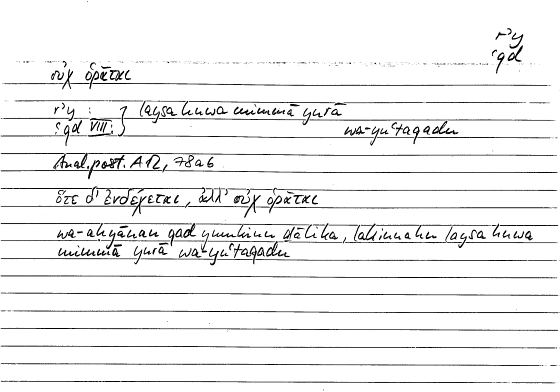 rʾy
ʿqd
οὐχ ὁρᾶται
rʾy :
ʿqd VIII: } laysa huwa mimmā yurā
wa-yuʿtaqadu
Anal. post. A 12, 78a6
ὅτε δ' ἐνδέχεται, ἀλλ' οὐχ ὁρᾶται
wa-aḥyānan qad yumkinu ḏālika, lakinnahu laysa huwa
mimmā yurā wa-yuʿtaqadu